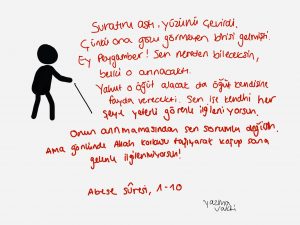 Suratını astı, yüzünü çevirdi.
Çünkü ona gözü görmeyen birisi gelmişti.
Ey Peygamber! Sen nereden bileceksin,
belki o arınacaktı.
Yahut o öğüt alacak da öğüt kendisine
fayda verecekti. Sen ise kendini her
şeye yeterli görenle ilgileniyorsun.
Onun arınmamasından sen sorumlu değilsin.
Ama gönlünde Allah korkusu taşıyarak koşup sana
gelenle ilgilenmiyorsun!
Abese Sûresi, 1-10
yazma
vakti